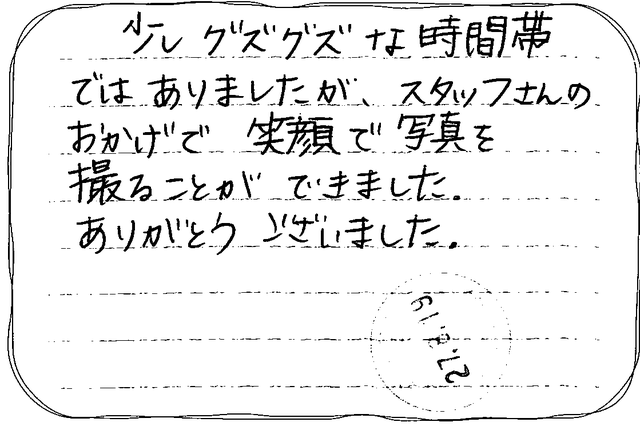 少し グズグズ な 時間帯
では ありましたが、スタッフさんの
おかげで 笑顔で 写真を
撮ることが できました。
ありがとう ございました。
27.8.19